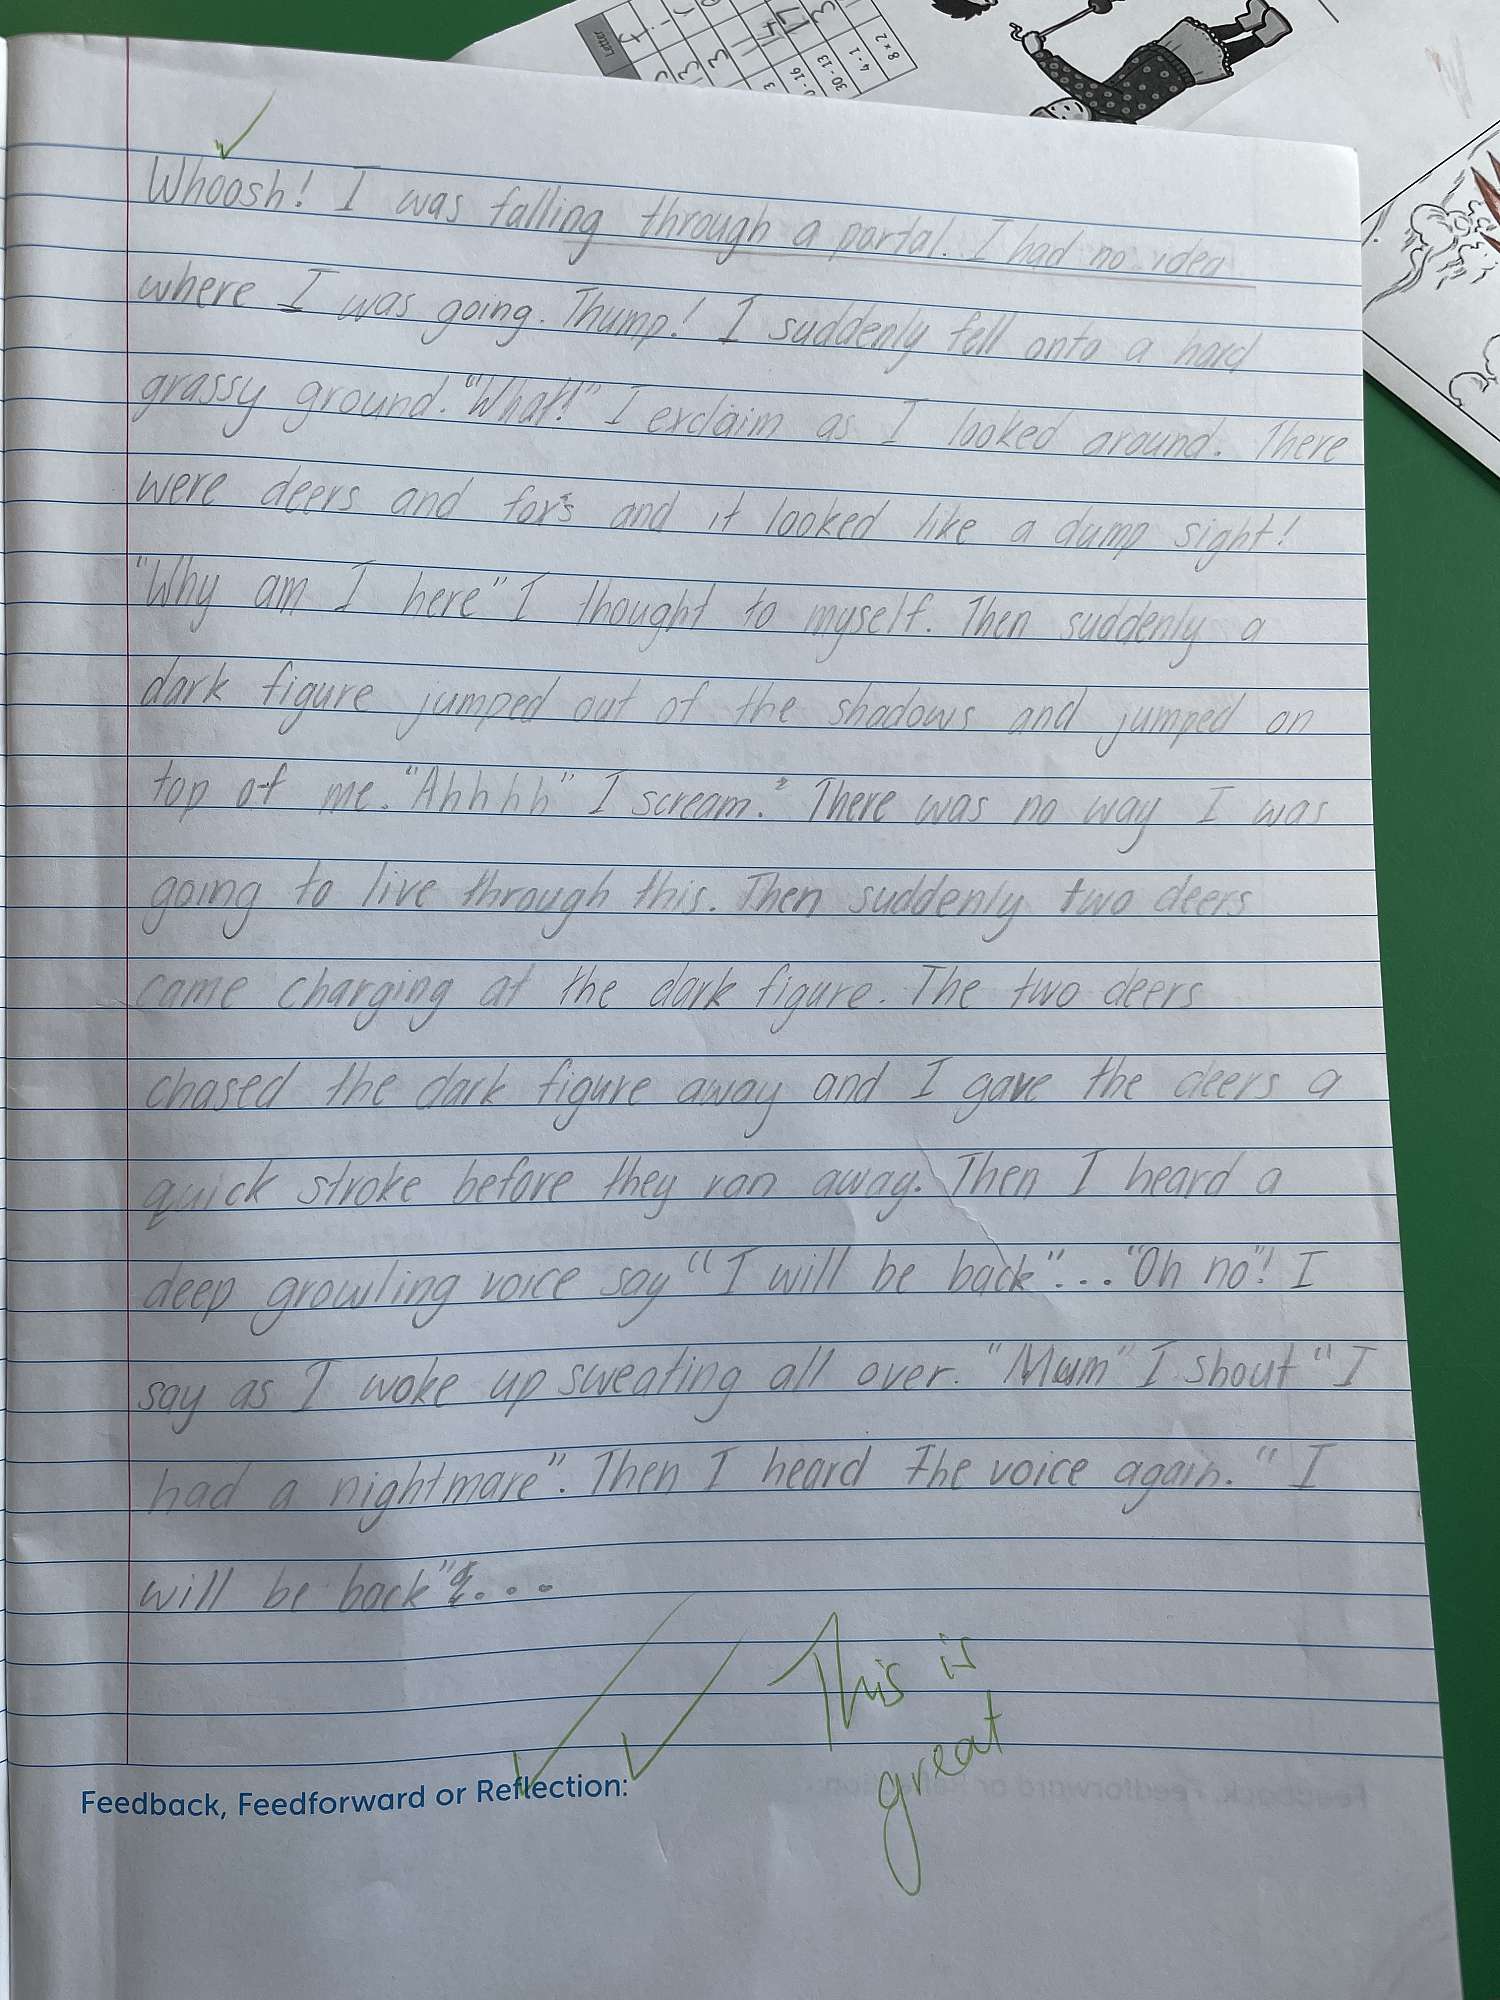 Letter
8 x 2
4 - 1
30 - 13
Whoosh! I was falling through a portal. I had no idea
where I was going. Thump! I suddenly fell onto a hard
grassy ground. "What!" I exclaim as I looked around. There
were deers and fox's and it looked like a dump sight!
"Why am I here" I thought to myself. Then suddenly a
dark figure jumped out of the shadows and jumped on
top of me. "Ahhhh" I scream." There was no way I was
going to live through this. Then suddenly two deers
came charging at the dark figure. The two deers
chased the dark figure away and I gave the deers a
quick stroke before they ran away. Then I heard a
deep growling voice say "I will be back"... "Oh no"! I
say as I woke up sweating all over. "Mum" I shout "I
had a nightmare". Then I heard the voice again. "I
will be back"...
This is
great
Feedback, Feedforward or Reflection: